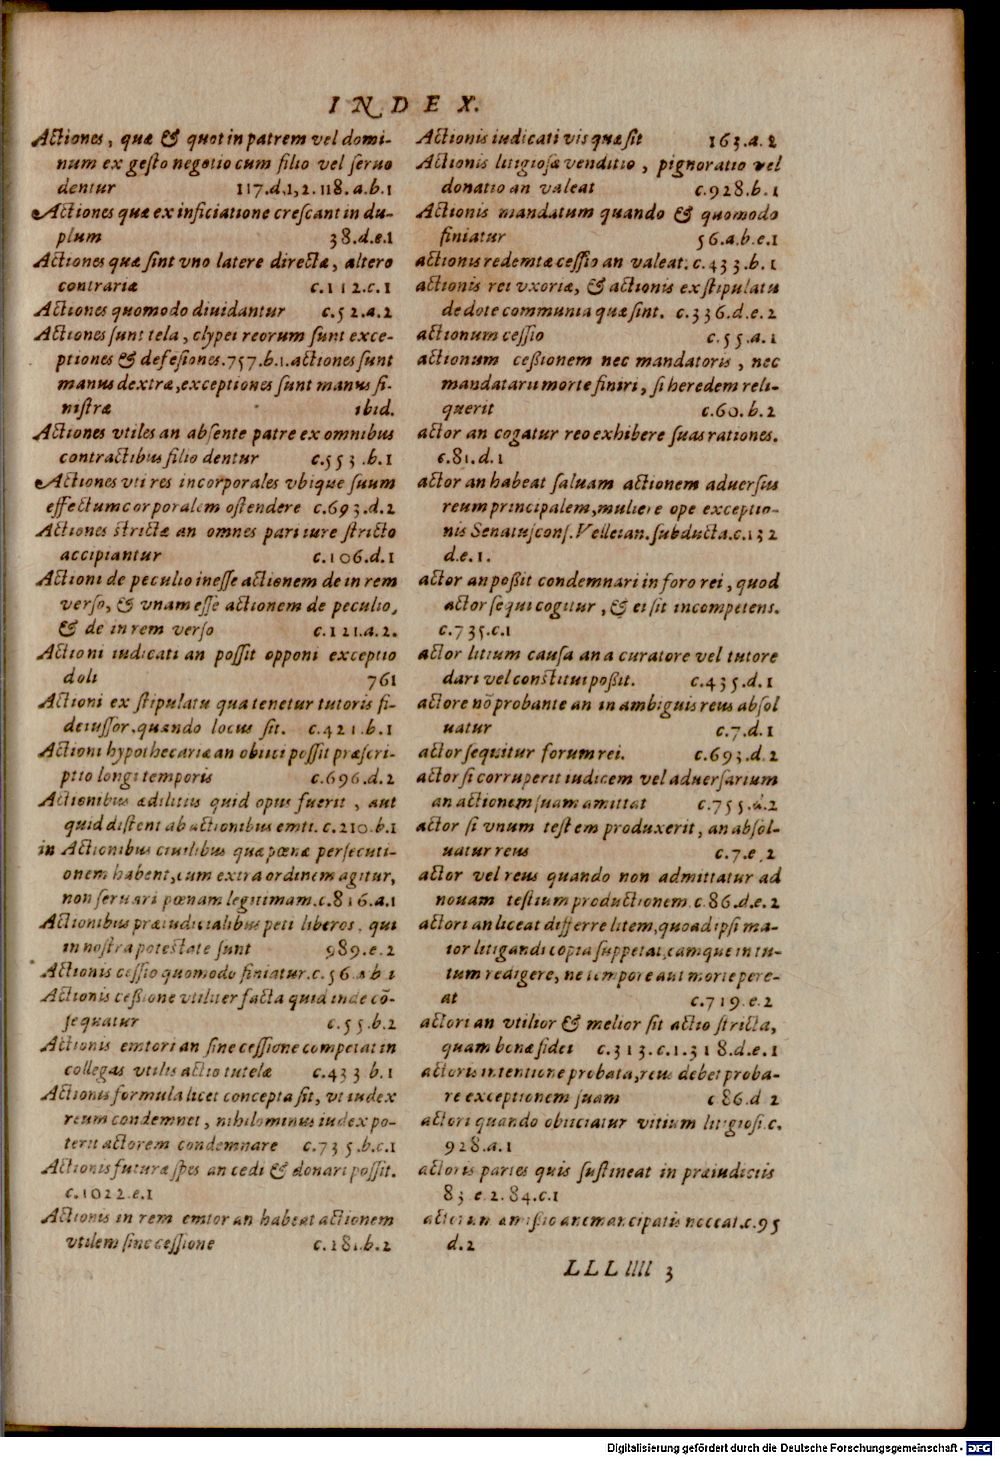 INDEX.
Actiones, quæ & quot in patrem vel domi-
num ex gesto negotio cum filio vel seruo
dentur 117.d.1,2.118.a.b.1
Actiones quæ ex inficiatione crescant in du-
plum 38.d.e.1
Actiones quæ sint vno latere directæ, altero
contrariæ c.112.c.1
Actiones quomodo diuidantur c.52.a.2
Actiones sunt tela, clypei reorum sunt exce-
ptiones & defesiones.757.b.1.actiones sunt
manus dextræ, exceptiones sunt manus si-
nistræ ibid.
Actiones vtiles an absente patre ex omnibus
contractibus filio dentur c.553.b.1
Actiones vti res incorporales vbique suum
effectum corporalem ostendere c.693.d.2
Actiones strictæ an omnes pari iure stricto
accipiantur c.106.d.1
Actioni de peculio inesse actionem de in rem
verso, & vnam esse actionem de peculio,
& de in rem verso c.121.a.2.
Actioni iudicati an possit opponi exceptio
doli 761
Actioni ex stipulatu qua tenetur tutoris fi-
deiussor, quando locus sit. c.421.b.1
Actioni hypothecariæ an obiici possit præscri-
ptio longi temporis c.696.d.2
Actionibus ædilitiis quid opus fuerit, aut
quid distent ab actionibus emti. c.210.b.1
in Actionibus ciuilibus quæ pœnæ persecuti-
onem habent, cum extra ordinem agitur,
non seruari pœnam legitimam.c.816.a.1
Actionibus præiudicialibus peti liberos, qui
in nostra potestate sunt 989.e.2
Actionis cessio quomodo finiatur.c.56.a b 1
Actionis cessione vtiliter facta quid inde cõ-
sequatur c.55.b.2
Actionis emtori an sine cessione competat in
collegas vtilis actio tutelæ c.433 b.1
Actionis formula licet concepta sit, vt iudex
reum condemnet, nihilominus iudex po-
terit actorem condemnare c.735.b.c.1
Actionis futuræ spes an cedi & donari possit.
c.1022.e.1
Actionis in rem emtor an habeat actionem
vtilem sine cessione c.181.b.2
Actionis iudicati vis quæ sit 163.a.2
Actionis litigiosa venditio, pignoratio vel
donatio an valeat c.928.b.1
Actionis mandatum quando & quomodo
finiatur 56.a.b.e.1
actionis redemtæ cessio an valeat.c.433.b.1
actionis rei vxoriæ, & actionis ex stipulatu
de dote communia quæ sint. c.336.d.e.2
actionum cessio c.55.a.1
actionum cessionem nec mandatoris, nec
mandatarii morte finiri, si heredem reli-
querit c.60.b.2
actor an cogatur reo exhibere suas rationes.
c.81.d.1
actor an habeat saluam actionem aduersus
reum principalem, muliere ope exceptio-
nis Senatusconf. Velleian. subducta.c.132
d.e.1.
actor an possit condemnari in foro rei, quod
actor sequi cogitur, & ei sit incompetens.
c.735.c.1
actor litium causa an a curatore vel tutore
dari vel constitui possit. c.435.d.1
actore nõ probante an in ambiguis reus absol
uatur c.7.d.1
actor sequitur forum rei. c.693.d.2
actor si corruperit iudicem vel aduersarium
an actionem suam amittat c.755.a.2
actor si vnum testem produxerit, an absol-
uatur reus c.7.e.2
actor vel reus quando non admittatur ad
nouam testium productionem c.86.d.e.2
actori an liceat differre litem, quoad ipsi ma-
ior litigandi copia suppetat, eamque in tu-
tum redigere, ne tempore aut morte pere-
at c.719.e.2
actori an vtilior & melior sit actio stricta,
quam bonæ fidei c.313.c.1.318.d.e.1
actoris intentione probata, reus debet proba-
re exceptionem suam c 86.d 2
actori quando obiiciatur vitium litigiosi.c.
928.a.1
actoris partes quis sustineat in præiudiciis
83 e.2.84.c.1
noceat.c.95
d.2
LLL llll 3
Digitalisierung gefördert durch die Deutsche Forschungsgemeinschaft - DFG